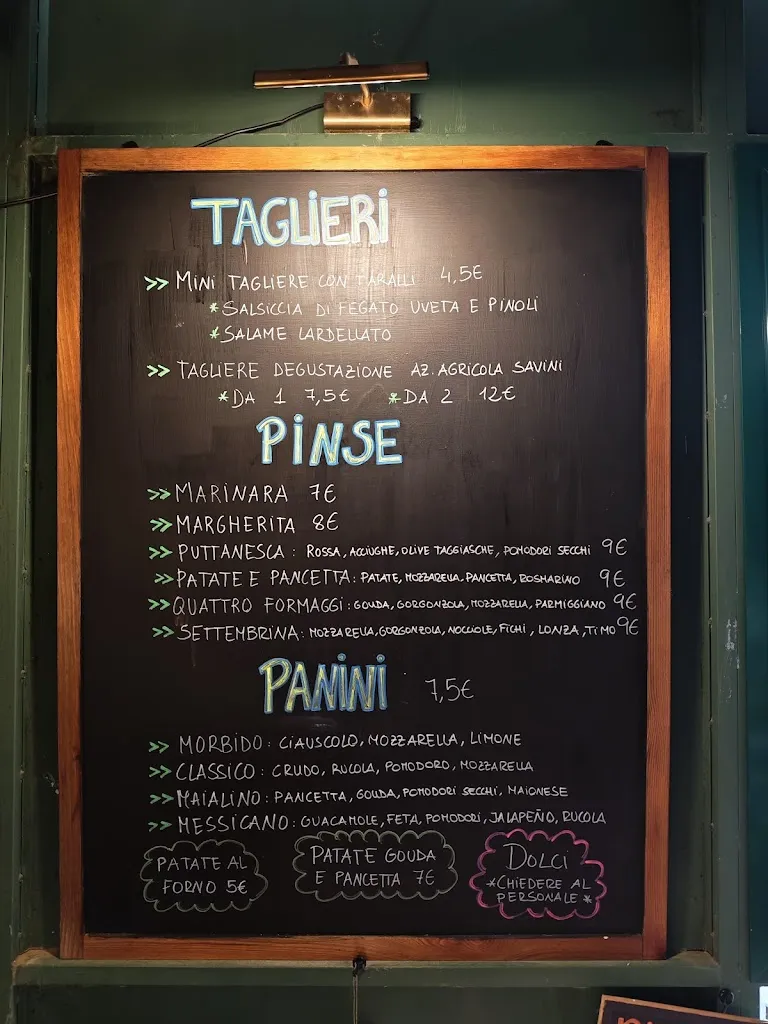 TAGLIERI
>> MINI TAGLIERE CON TARALLI 4,5€
*SALSICCIA DI FEGATO UVETA E PINOLI
*SALAME LARDELLATO
>> TAGLIERE DEGUSTAZIONE AZ. AGRICOLA SAVINI
*DA 1 7,5€ *DA 2 12€
PINSE
>> MARINARA 7€
>> MARGHERITA 8€
>> PUTTANESCA: ROSSA, ACCIUGHE, OLIVE TAGGIASCHE, POMODORI SECCHI 9€
>> PATATE E PANCETTA: PATATE, MOZZARELLA, PANCETTA, ROSMARINO 9€
>> QUATTRO FORMAGGI: GOUDA, GORGONZOLA, MOZZARELLA, PARMIGGIANO 9€
>> SETTEMBRINA: MOZZARELLA, GORGONZOLA, NOCCIOLE, FICHI, LONZA, TIMO 9€
PANINI 7,5€
>> MORBIDO: CIAUSCOLO, MOZZARELLA, LIMONE
>> CLASSICO: CRUDO, RUCOLA, POMODORO, MOZZARELLA
>> MAIALINO: PANCETTA, GOUDA, POMODORI SECCHI, MAIONESE
>> MESSICANO: GUACAMOLE, FETA, POMODORI, JALAPEÑO, RUCOLA
PATATE AL
FORNO 5€
PATATE GOUDA
E PANCETTA 7€
DOLCI
*CHIEDERE AL
PERSONALE*